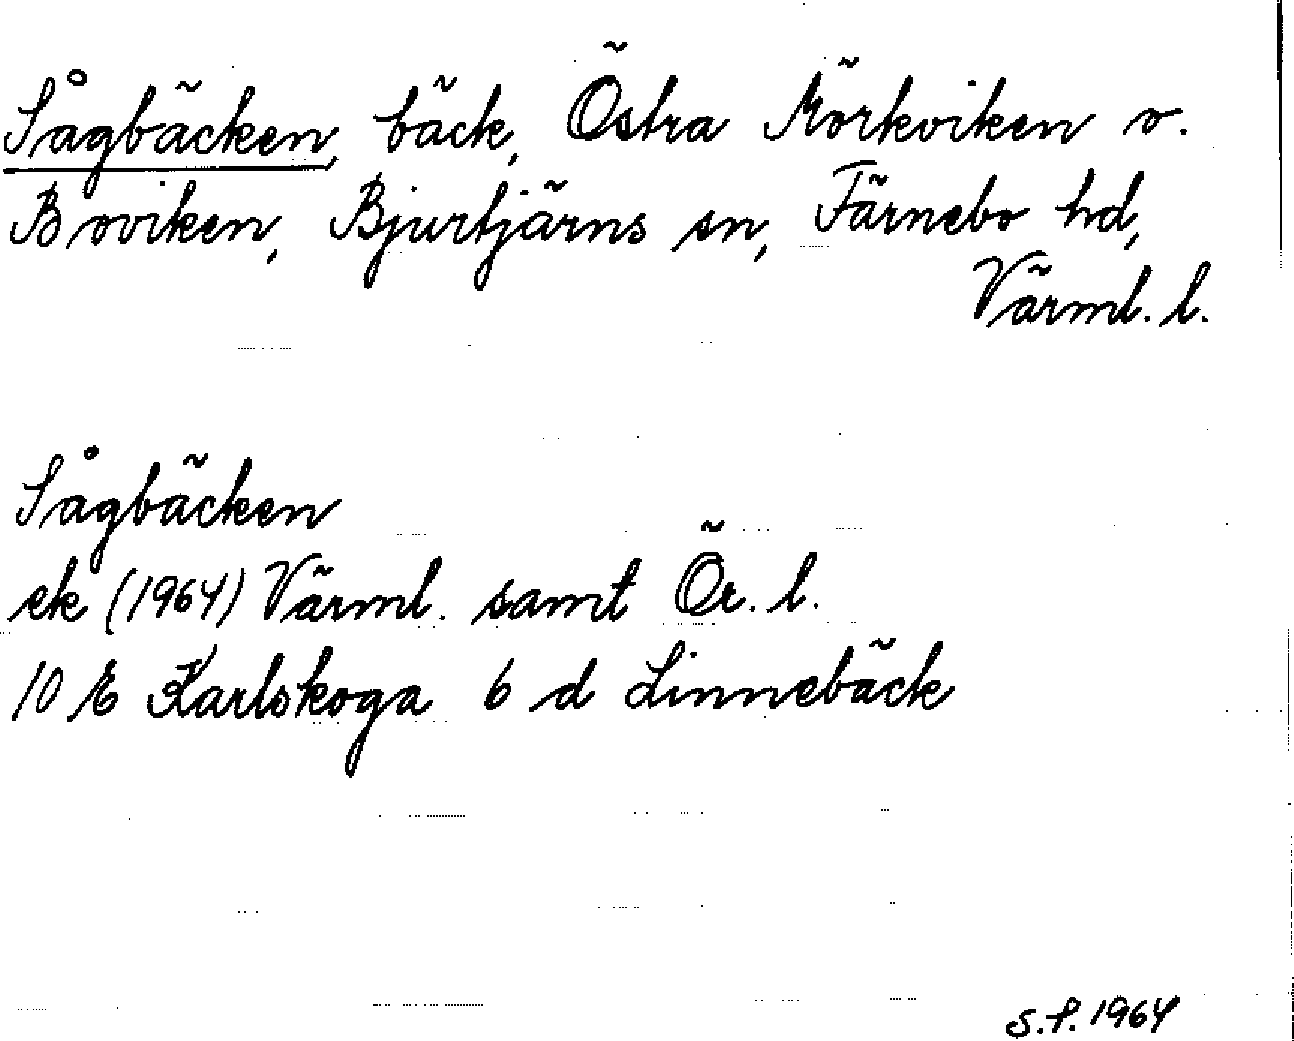 Sågbäcken, bäck, Östra Mörkviken o.
Boviken, Bjurtjärns sn, Färnebo hd,
Värml. l.
Sågbäcken
ek (1964) Värml. samt Ör. l.
10 E Karlskoga 6 d Linnebäck
S.P. 1964